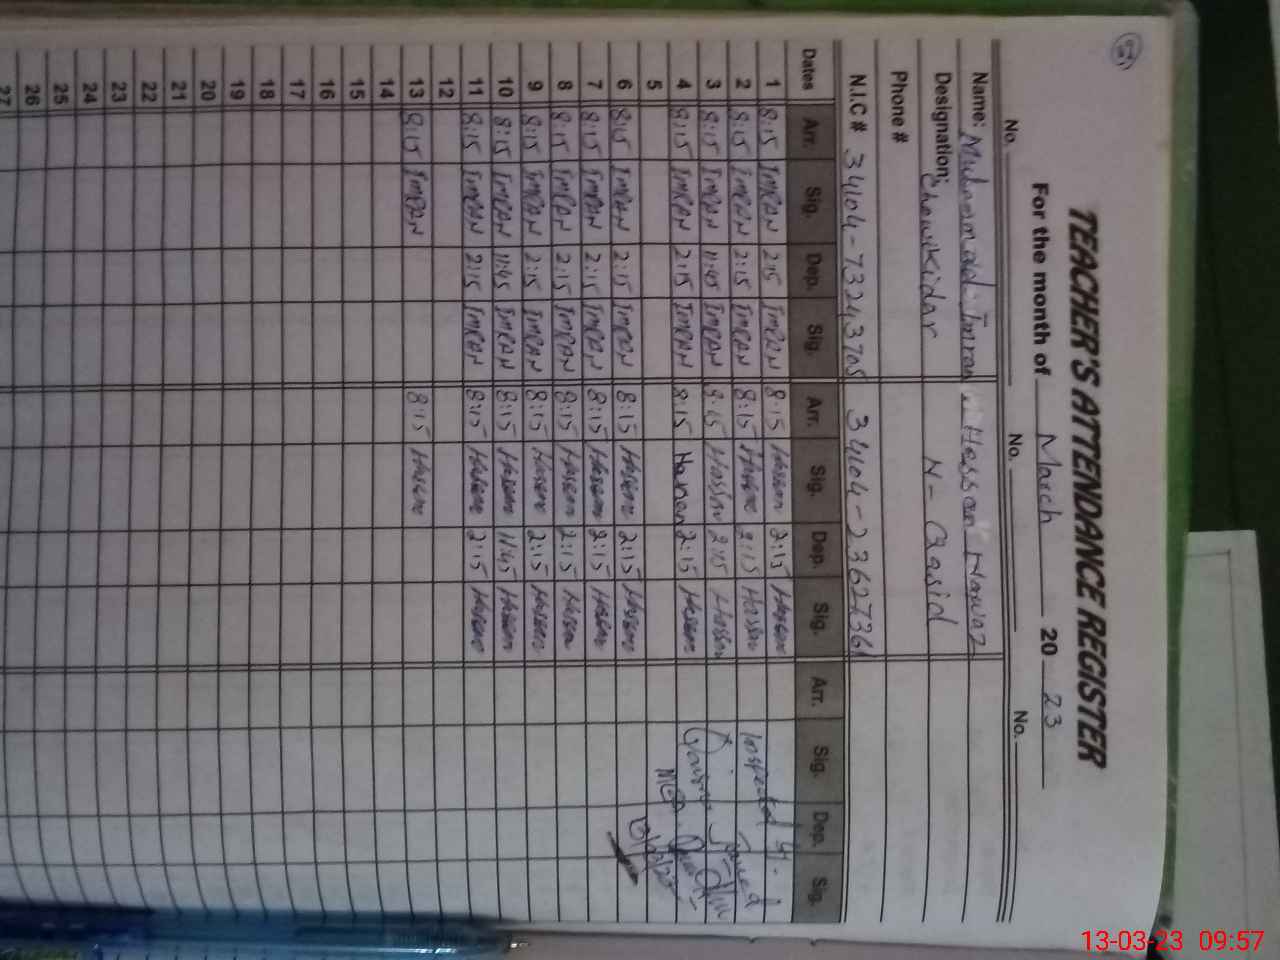 51
TEACHER'S ATTENDANCE REGISTER
For the month of March 20 23
No. No. No.
Name: Muhammad Imran Hassan Nawaz
Designation: Chowikidar N- Qasid
Phone #
N.I.C # 34104-73243705 34104-2362736
Dates Arr. Sig. Dep. Sig. Arr. Sig. Dep. Sig. Arr. Sig. Dep. Sig.
1 8:15 IMRAN 2:15 IMRAN 8:15 Hassan 2:15 Hassan
2 8:15 IMRAN 2:15 IMRAN 8:15 Hassan 2:15 Hassan
3 8:15 IMRAN 11:45 IMRAN 8:15 Hassan 2:15 Hassan
4 8:15 IMRAN 2:15 IMRAN 8:15 Hassan 2:15 Hassan
5
6 8:15 IMRAN 2:15 IMRAN 8:15 Hassan 2:15 Hassan
7 8:15 IMRAN 2:15 IMRAN 8:15 Hassan 2:15 Hassan
8 8:15 IMRAN 2:15 IMRAN 8:15 Hassan 2:15 Hassan
9 8:15 IMRAN 2:15 IMRAN 8:15 Hassan 2:15 Hassan
10 8:15 IMRAN 11:45 IMRAN 8:15 Hassan 11:45 Hassan
11 8:15 IMRAN 2:15 IMRAN 8:15 Hassan 2:15 Hassan
12
13 8:15 IMRAN 8:15 Hassan
14
15
16
17
18
19
20
21
22
23
24
25
26
27
Inspected
13-03-23 09:57